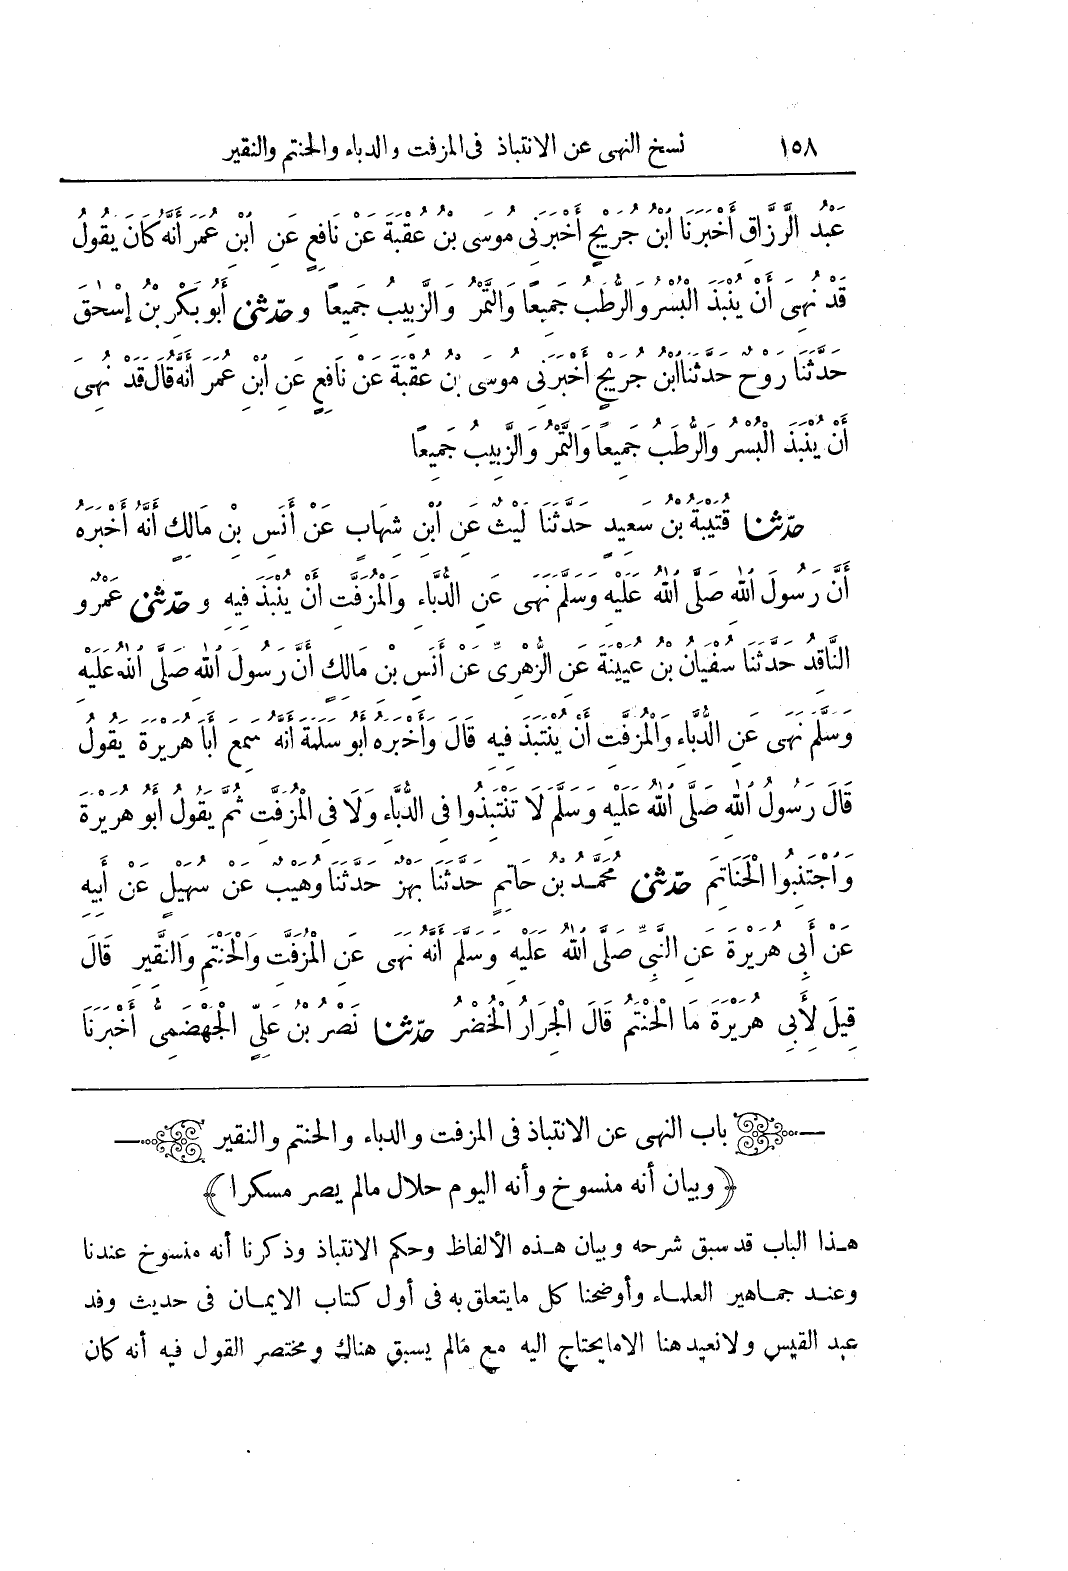 ١٥٨ نسخ النهى عن الانتباذ فى المزفت والدباء والحنتم والنقير
عَبْدُ الرَّزَّاقِ أَخْبَرَنَا ابْنُ جُرَيْجٍ أَخْبَرَنِى مُوسَى بْنُ عُقْبَةَ عَنْ نَافِعٍ عَنِ ابْنِ عُمَرَ أَنَّهُ كَانَ يَقُولُ
قَدْ نُهِىَ أَنْ يُنْبَذَ الْبُسْرُ وَالرُّطَبُ جَمِيعًا وَالتَّمْرُ وَالزَّبِيبُ جَمِيعًا وحَدَّثَنِى أَبُو بَكْرِ بْنُ إِسْحٰقَ
حَدَّثَنَا رَوْحٌ حَدَّثَنَا ابْنُ جُرَيْجٍ أَخْبَرَنِى مُوسَى بْنُ عُقْبَةَ عَنْ نَافِعٍ عَنِ ابْنِ عُمَرَ أَنَّهُ قَالَ قَدْ نُهِىَ
أَنْ يُنْبَذَ الْبُسْرُ وَالرُّطَبُ جَمِيعًا وَالتَّمْرُ وَالزَّبِيبُ جَمِيعًا
حَدَّثَنَا قُتَيْبَةُ بْنُ سَعِيدٍ حَدَّثَنَا لَيْثٌ عَنِ ابْنِ شِهَابٍ عَنْ أَنَسِ بْنِ مَالِكٍ أَنَّهُ أَخْبَرَهُ
أَنَّ رَسُولَ اللّٰهِ صَلَّى اللّٰهُ عَلَيْهِ وَسَلَّمَ نَهَى عَنِ الدُّبَّاءِ وَالْمُزَفَّتِ أَنْ يُنْبَذَ فِيهِ وحَدَّثَنِى عَمْرٌو
النَّاقِدُ حَدَّثَنَا سُفْيَانُ بْنُ عُيَيْنَةَ عَنِ الزُّهْرِىِّ عَنْ أَنَسِ بْنِ مَالِكٍ أَنَّ رَسُولَ اللّٰهِ صَلَّى اللّٰهُ عَلَيْهِ
وَسَلَّمَ نَهَى عَنِ الدُّبَّاءِ وَالْمُزَفَّتِ أَنْ يُنْتَبَذَ فِيهِ قَالَ وَأَخْبَرَهُ أَبُو سَلَمَةَ أَنَّهُ سَمِعَ أَبَا هُرَيْرَةَ يَقُولُ
قَالَ رَسُولُ اللّٰهِ صَلَّى اللّٰهُ عَلَيْهِ وَسَلَّمَ لَا تَنْتَبِذُوا فِى الدُّبَّاءِ وَلَا فِى الْمُزَفَّتِ ثُمَّ يَقُولُ أَبُو هُرَيْرَةَ
وَاجْتَنِبُوا الْحَنَاتِمَ حَدَّثَنِى مُحَمَّدُ بْنُ حَاتِمٍ حَدَّثَنَا بَهْزٌ حَدَّثَنَا وُهَيْبٌ عَنْ سُهَيْلٍ عَنْ أَبِيهِ
عَنْ أَبِى هُرَيْرَةَ عَنِ النَّبِىِّ صَلَّى اللّٰهُ عَلَيْهِ وَسَلَّمَ أَنَّهُ نَهَى عَنِ الْمُزَفَّتِ وَالْحَنْتَمِ وَالنَّقِيرِ قَالَ
قِيلَ لِأَبِى هُرَيْرَةَ مَا الْحَنْتَمُ قَالَ الْجِرَارُ الْخُضْرُ حَدَّثَنَا نَصْرُ بْنُ عَلِىٍّ الْجَهْضَمِىُّ أَخْبَرَنَا
باب النهى عن الانتباذ فى المزفت والدباء والحنتم والنقير
﴿ وبيان أنه منسوخ وأنه اليوم حلال مالم يصر مسكرا ﴾
هذا الباب قد سبق شرحه وبيان هذه الألفاظ وحكم الانتباذ وذكرنا أنه منسوخ عندنا
وعند جماهير العلماء وأوضحنا كل مايتعلق به فى أول كتاب الايمان فى حديث وفد
عبد القيس ولانعيد هنا الامايحتاج اليه مع مالم يسبق هناك ومختصر القول فيه أنه كان